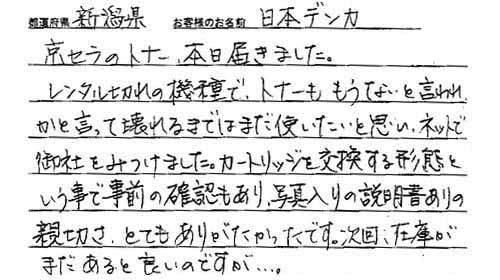 都道府県 新潟県 お客様のお名前 日本デンカ
京セラのトナー、本日届きました。
レンタル切れの機種で、トナーももうないと言われ、
かと言って壊れるまではまだ使いたいと思い、ネットで
御社をみつけました。カートリッジを交換する形態と
いう事で事前の確認もあり、写真入りの説明書ありの
親切さ、とてもありがたかったです。次回、在庫が
まだあると良いのですが…。